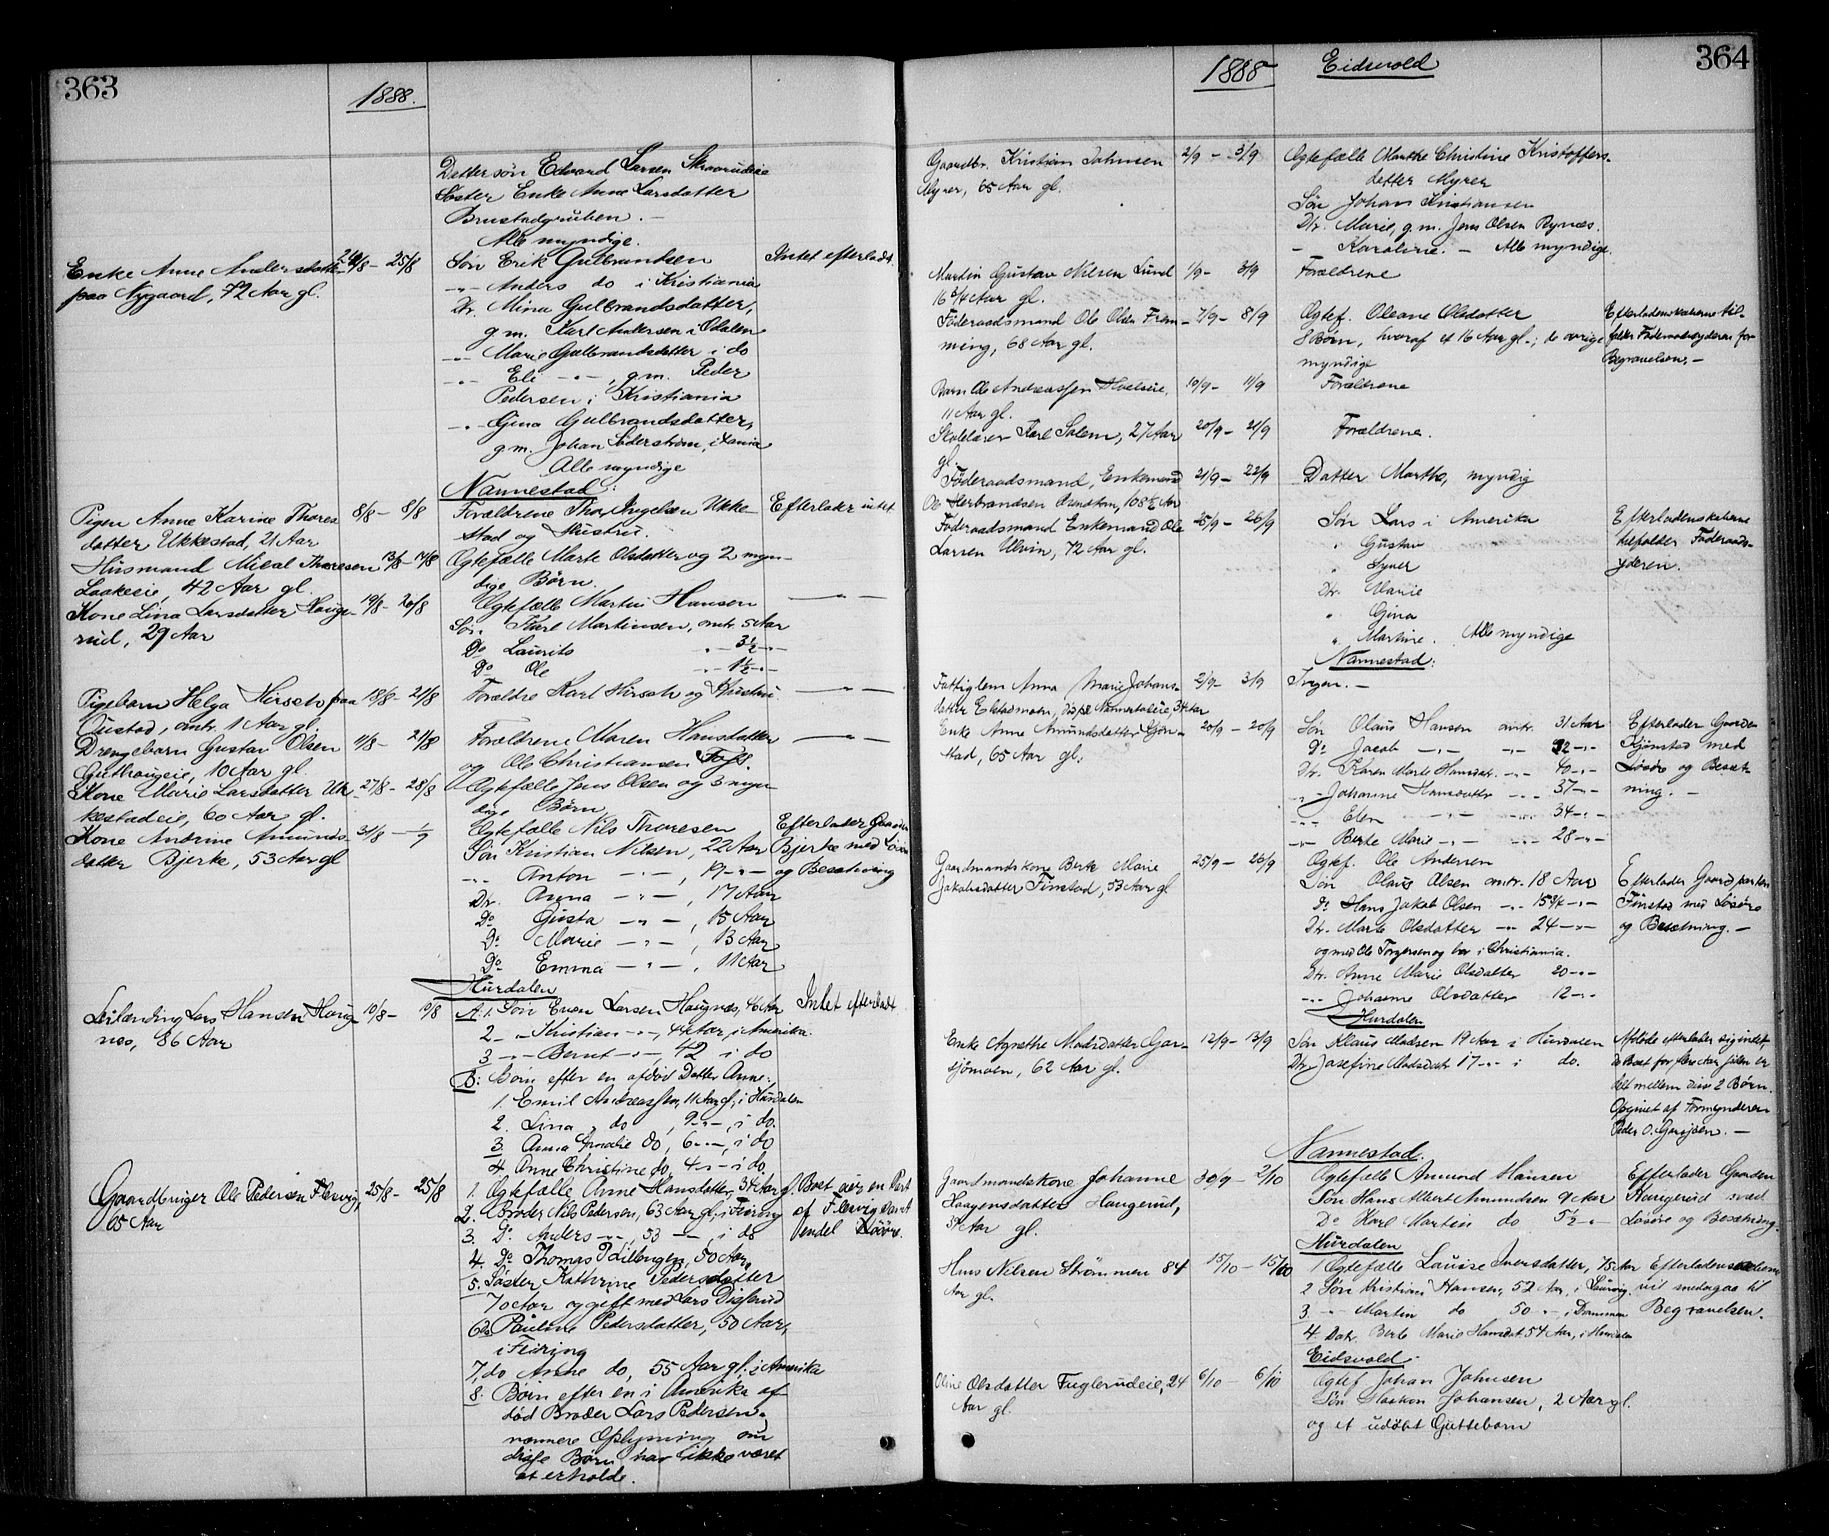 363
1888.
Dattersön Edvard Larsen
Söster Enke Anne Larsdatter
Brustadgruben. —
Alle myndige.
Enke Anne Andersdatter 24/8 – 25/8 Søn Erik Gulbrandsen Intet efterladt.
paa Nygaard, 72 Aar gl. -„- Anders do i Kristiania
Dtr. Mina Gulbrandsdatter,
g.m. Karl Andersen i Odalen
-„- Marie Gulbrandsdatter i do
-„- Eli -„-, g.m. Peder
Pedersen i Kristiania
-„- Gina Gulbrandsdatter,
g.m. Johan Söderström, i Xania
Alle myndige
Nannestad:
Pigen Anne Karine Thores 8/8 – 8/8 Forældrene Thor Ingelsen Ukke- Efterlader intet
datter Ukkestad, 21 Aar stad og Hustru.
Husmand Mikal Thoresen 13/8 – 17/8 Ægtefælle Marte Olsdatter og 2 myn-
Laakeeie, 42 Aar gl. dige Børn.
Kone Lina Larsdatter Hauge- 19/8 – 20/8 Ægtefælle Martin Hansen — „ —
rud, 29 Aar Søn. Karl Martinsen, omtr. 5 Aar
Do Laurits -„- 3½ -„-
Do Ole -„- 1½ -„-
Pigebarn Helga Hirsch paa 18/8 – 21/8 Forældre Karl Hirsch og Hustru — „ —
Oustad, omtr. 1 Aar gl.
Drengebarn Gustav Olsen 11/8 – 21/8 Forældrene Maren Hansdatter — „ —
Guthaugeie, 10 Aar gl. og Ole Christiansen
Kone Marie Larsdatter Uk- 27/8 – 28/8 Ægtefælle Jens Olsen og 3 myn-
kestadeie, 60 Aar gl. dige Børn
Kone Andrine Amunds- 31/8 – 1/9 Ægtefælle Nils Thoresen Efterlader Gaarden
datter Bjerke, 53 Aar gl Søn Kristian Nilsen, 22 Aar Bjerke med Løsøre
-„- Anton -„-, 19 -„- og Besætning
Dtr. Anna -„-, 17 Aar
Do Gusta -„-, 15 Aar
Do Marie -„-, 13 Aar
Do Emma -„-, 11 Aar
Hurdalen
Leilænding Lars Hansen Haug- 10/8 – 19/8 A: 1. Søn Even Larsen Haugnæs, 46 Aar Intet efterladt
næs, 86 Aar 2 -„- Kristian -„-, 44 Aar, i Amerika.
3 -„- Bernt -„-, 42 i do
B: Børn efter en afdød Datter Anne:
1. Emil Andreassen, 11 Aar gl, i Hurdalen
2. Lina do, 9 -„-, i do.
3. Anna Amalie do, 6 -„-, i do
4. Anne Christine do, 4 -„- i do.
Gaardbruger Ole Pedersen Flesvig, 25/8 – 25/8 1. Ægtefælle Anne Hansdatter, 34 Aar gl. Boet eier en Part
65 Aar 2. Broder Nils Pedersen, 63 Aar gl, i Feiring af Flesvig samt
3. Do Anders -„-, 53 -„-, i do endel Løsøre.
4. Do Thomas P., 50 Aar
5. Søster Kathrine Pedersdatter
70 Aar og gift med Lars Disserud
6 do Pauline Pedersdatter, 50 Aar,
i Feiring
7, do Anne do, 55 Aar gl, i Amerika
8. Børn efter en i Amerika af-
død Broder Lars Pedersen.
nærmere Oplysning om
disse Børn har ikke været
at erholde.
364
1888 Eidsvold
Gaardbr. Kristian Johnsen 2/9 – 3/9 Ægtefælle Marthe Christine Kristoffers-
Myrer, 65 Aar gl. datter Myrer
Søn Johan Kristiansen
Dtr. Marie, g.m. Jens Olsen Rynæs.
- Karoline. – Alle myndige.
Martin Gustav Nilsen Lund 1/9 – 3/9 Forældrene
16 3/4 Aar gl.
Föderaadsmand Ole Olsen Frem- 7/9 – 8/9 Ægtef. Oleane Olsdatter Efterladenskaberne til-
ming, 68 Aar gl. 8 Børn, hvoraf et 16 Aar gl.; de øvrige falder Föderaadsyderen for
myndige Begravelsen. –
Barn Ole Andreassen 10/9 – 11/9 Forældrene
11 Aar gl.
Skolelærer Karl Salem, 27 Aar 20/9 – 21/9 Forældrene.
gl.
Föderaadsmand, Enkemand 21/9 – 22/9 Datter Marthe, myndig
Ole Herbrandsen, 108½ Aar
Föderaadsmand Enkemand Ole 25/9 – 26/9 Søn Lars i Amerika Efterladenskaberne
Larsen Ulvin, 72 Aar gl. „ Gustav tilfalder Föderaads-
„ Syver yderen.
Dtr. Marie
„ Gina
„ Martine. Alle myndige
Nannestad:
Fattiglem Anna Marie Johans- 2/9 – 3/9 Ingen. –
datter Elstadmoen, 34 Aar
Enke Anne Amundsdatter Gjøn- 20/9 – 20/9 Søn Olaus Hansen omtr. 31 Aar Efterlader Gaarden
stad, 65 Aar gl. Do Jacob -„- -„- 32 -„- Gjønstad med
Dtr. Karen Marte Hansdat. -„- 40 -„- Løsøre og Besæt-
-„- Johanne Hansdatter -„- 37 -„- ning. –
-„- Elen -„- -„- 34 -„-
-„- Berte Marie -„- -„- 28 -„-
Gaardmandskone Berte Marie 25/9 – 26/9 Ægtef. Ole Andersen
Jakobsdatter Finstad, 53 Aar gl Søn Olaus Olsen omtr. 18 Aar Efterlader Gaardparten
Do Hans Jakob Olsen -„- 15 3/4 -„- Finstad med Løsøre
Dtr. Marte Olsdatter -„- 24 -„- og Besætning. –
og med Ole Torgersen og bor i Christiania.
Dtr. Anne Marie Olsdatter 20 -„-
-„- Johanne Olsdatter 12 -„-
Hurdalen
Enke Agnethe Madsdatter Gar- 12/9 – 13/9 Søn Klaus Madsen 19 Aar i Hurdalen Afdøde efterlader sig intet,
sjømoen, 62 Aar gl. Dtr. Josefine Madsdatr 17 -„- i do. da Boet for flere Aar siden er
delt mellem disse 2 Børn.
Opgivet af Formynderen
Peder O. Garsjøen. –
Nannestad.
Gaardmandskone Johanne 30/9 – 2/10 Ægtefælle Amund Hansen Efterlader Gaarden
Haagensdatter Haugerud, Søn Hans Albert Amundsen 9 Aar Haugerud med
37 Aar gl. Do Karl Martin do 5½ -„- Løsøre og Besætning.
Hurdalen
Hans Nilsen Strømmen 84 15/10 – 15/10 1 Ægtefælle Lauise Iversdatter, 75 Aar Efterladenskaberne
Aar gl. 2 Søn Kristian Hansen, 52 Aar, i Laurvig. vil medgaa til
3 -„- Martin do 50 -„- i Drammen Begravelsen.
4. Datr. Berte Marie Hansdat. 54 Aar, i Hurdalen
Eidsvold.
Oline Olsdatter Fuglerudeie, 24 6/10 – 6/10 Ægtef. Johan Johnsen
Aar gl. Søn Haakon Johansen, 2 Aar gl.
og et udøbt Guttebarn